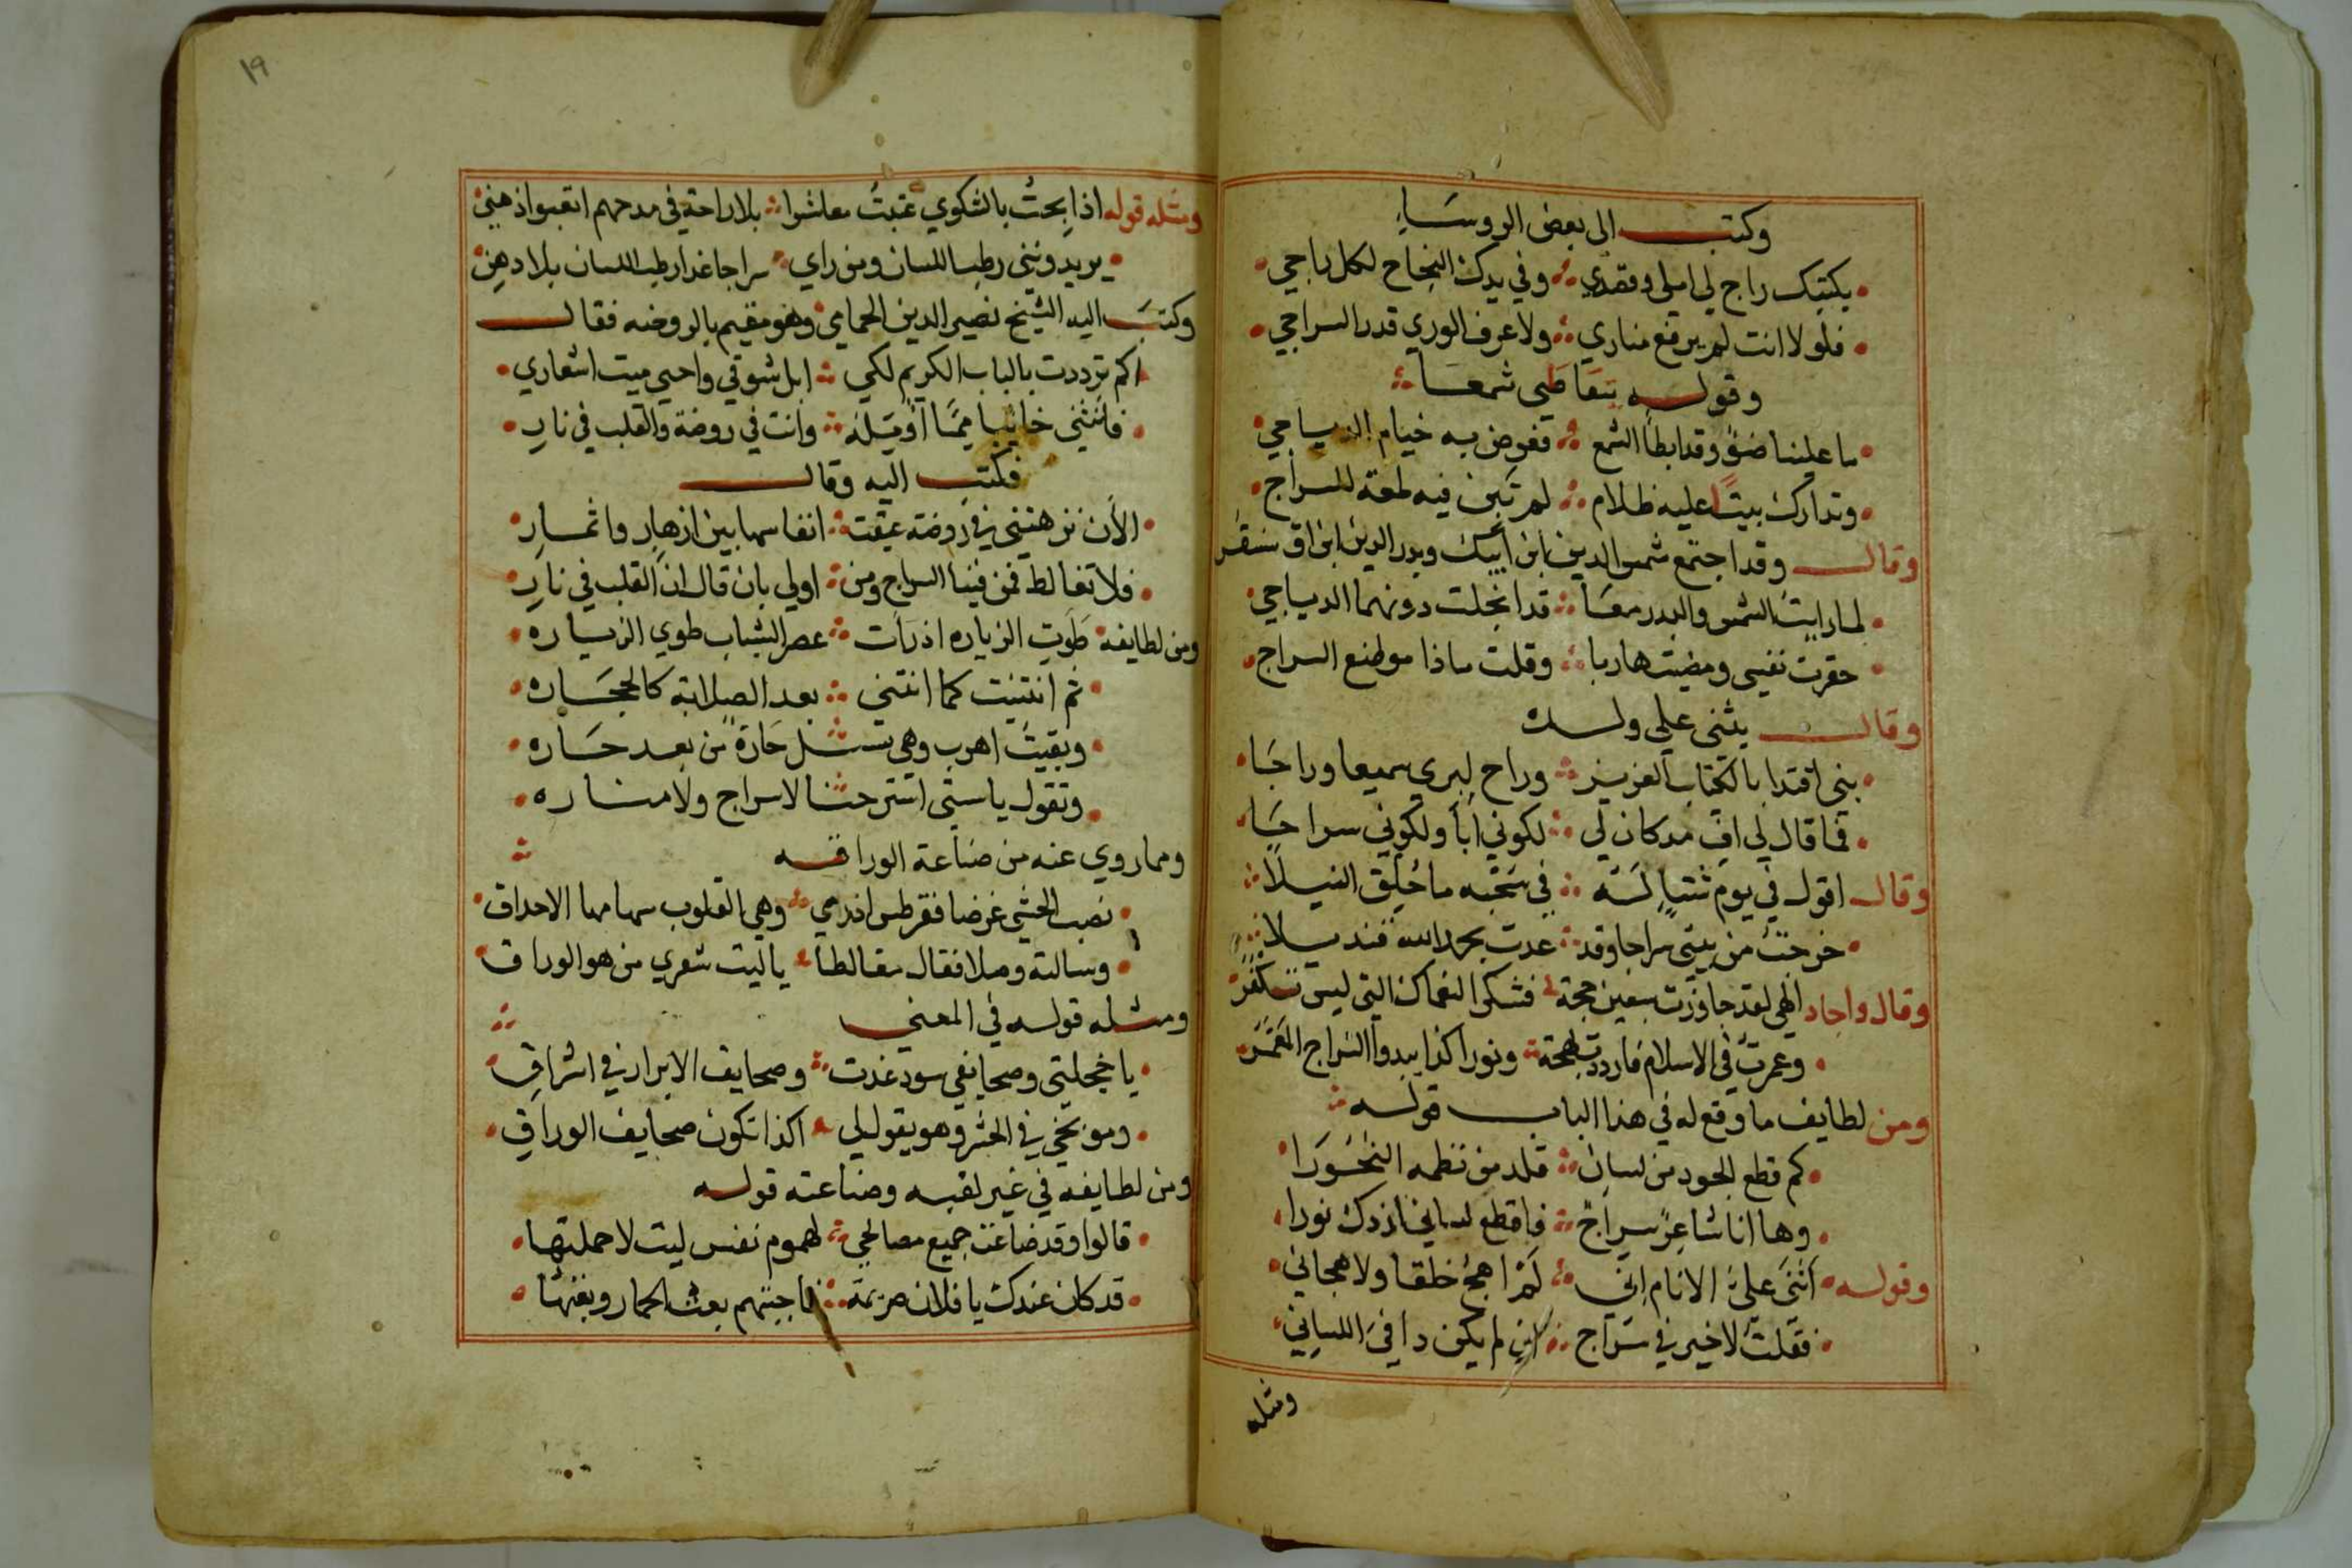 وكتب الى بعض الروساء
بكتبك راج لي املي وقصدي وفي يدك النجاح لكل راجي
فلولا انت لم يرفع مناري ولا عرف الوري قدر السراجي
وقوله يتقاضى شمعا
ما علينا ضوٌ وقد ابطأ الشمع فقوض به خيام الدياجي
وتدارك بيتًا عليه ظلام لم تبن فيه لمعة للسراج
وقال وقد اجتمع شمس الدين ابن أيبك وبدر الدين ابن اق سنقر
لما رايت الشمس والبدر معًا قد انجلت دونهما الدياجي
حقرت نفسي ومضيت هاربا وقلت ماذا موضع السراج
وقال يثني على ولده
بني اقتدا بالكتاب العزيز وراح لبري سميعا وراجا
فما قال لي اف مدكان لي لكوني أبا ولكوني سراجا
وقال اقول في يوم شتاء لَه في سحبه ما خلق النيلا
خرجت من بيتي سراجا وقد عدت بحمد الله قنديلا
وقال واجاد الهي لقد جاوزت سبعين حجة فشكرا لنعماك التي ليس تكفر
وعمرت في الاسلام فازددت بهجة ونورا كذا يبدوا السراج المعمر
ومن لطايف ما وقع له في هذا الباب قوله
كم قطع الجود من لسان قلد من نظمه النحورا
وها انا شاعر سراج فاقطع لساني ازدك نورا
وقوله أثنى علىّ الانام اني لم اهج خلقا ولا هجاني
فقلت لا خير في سراج ان لم يكن دافئ اللساني
ومثله
١٩
ومثله قوله اذا بحت بالشكوي عتبت معاشرا بلا راحة في مدحهم اتعبوا ذهني
يريدونني رطب اللسان ومن راي سراجا غدا رطب اللسان بلا دهن
وكتب اليه الشيخ نصير الدين الحمامي وهو مقيم بالروضه فقال
اكم ترددت بالباب الكريم لكي ابل شوقي واحيي ميت اشعاري
فانثني خائبا ممّا أؤمّله وانت في روضة والقلب في نار
فكتب اليه وقال
الأن نزهتني في روضة عبقت انفاسها بين ازهار واثمار
فلا تغالط فمن فينا السراج ومن اولي بان قال ان القلب في نار
ومن لطايفه طوت الزياره اذ رات عصر الشباب طوي الزياره
ثم انثنت كما انثني بعد الصلابة كالحجاره
وبقيت اهرب وهي تسئل حارة من بعد حاره
وتقول ياستي استرحنا لا سراج ولا مناره
ومما روي عنه من صناعة الوراقه
نصب الحشي غرضا فقرطس اذ رمي وهي القلوب سهامها الاحداق
وسالته وصلا فقال مغالطا ياليت شعري من هو الوراق
ومثله قوله في المعنى
ياخجلتي وصحائفي سود غدت وصحايف الابرار في اشراق
وموبخي في الحشر وهو يقول لي اكذا تكون صحايف الوراق
ومن لطايفه في غير لقبه وصناعته قوله
قالوا وقد ضاعت جميع مصالحي لهموم نفس ليت لا حملتها
قد كان عندك يا فلان صريمة فاجبتهم بعت الحمار وبعتها